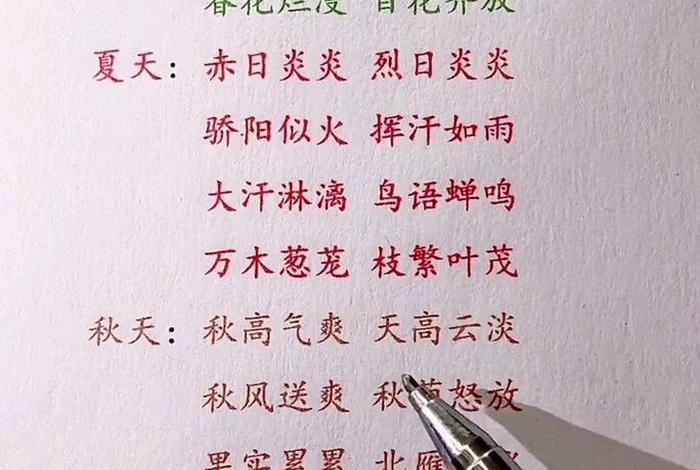 春花烂漫 百花齐放
夏天：赤日炎炎 烈日炎炎
骄阳似火 挥汗如雨
大汗淋漓 鸟语蝉鸣
万木葱茏 枝繁叶茂
秋天：秋高气爽 天高云淡
秋风送爽 秋菊怒放
果实累累 北雁